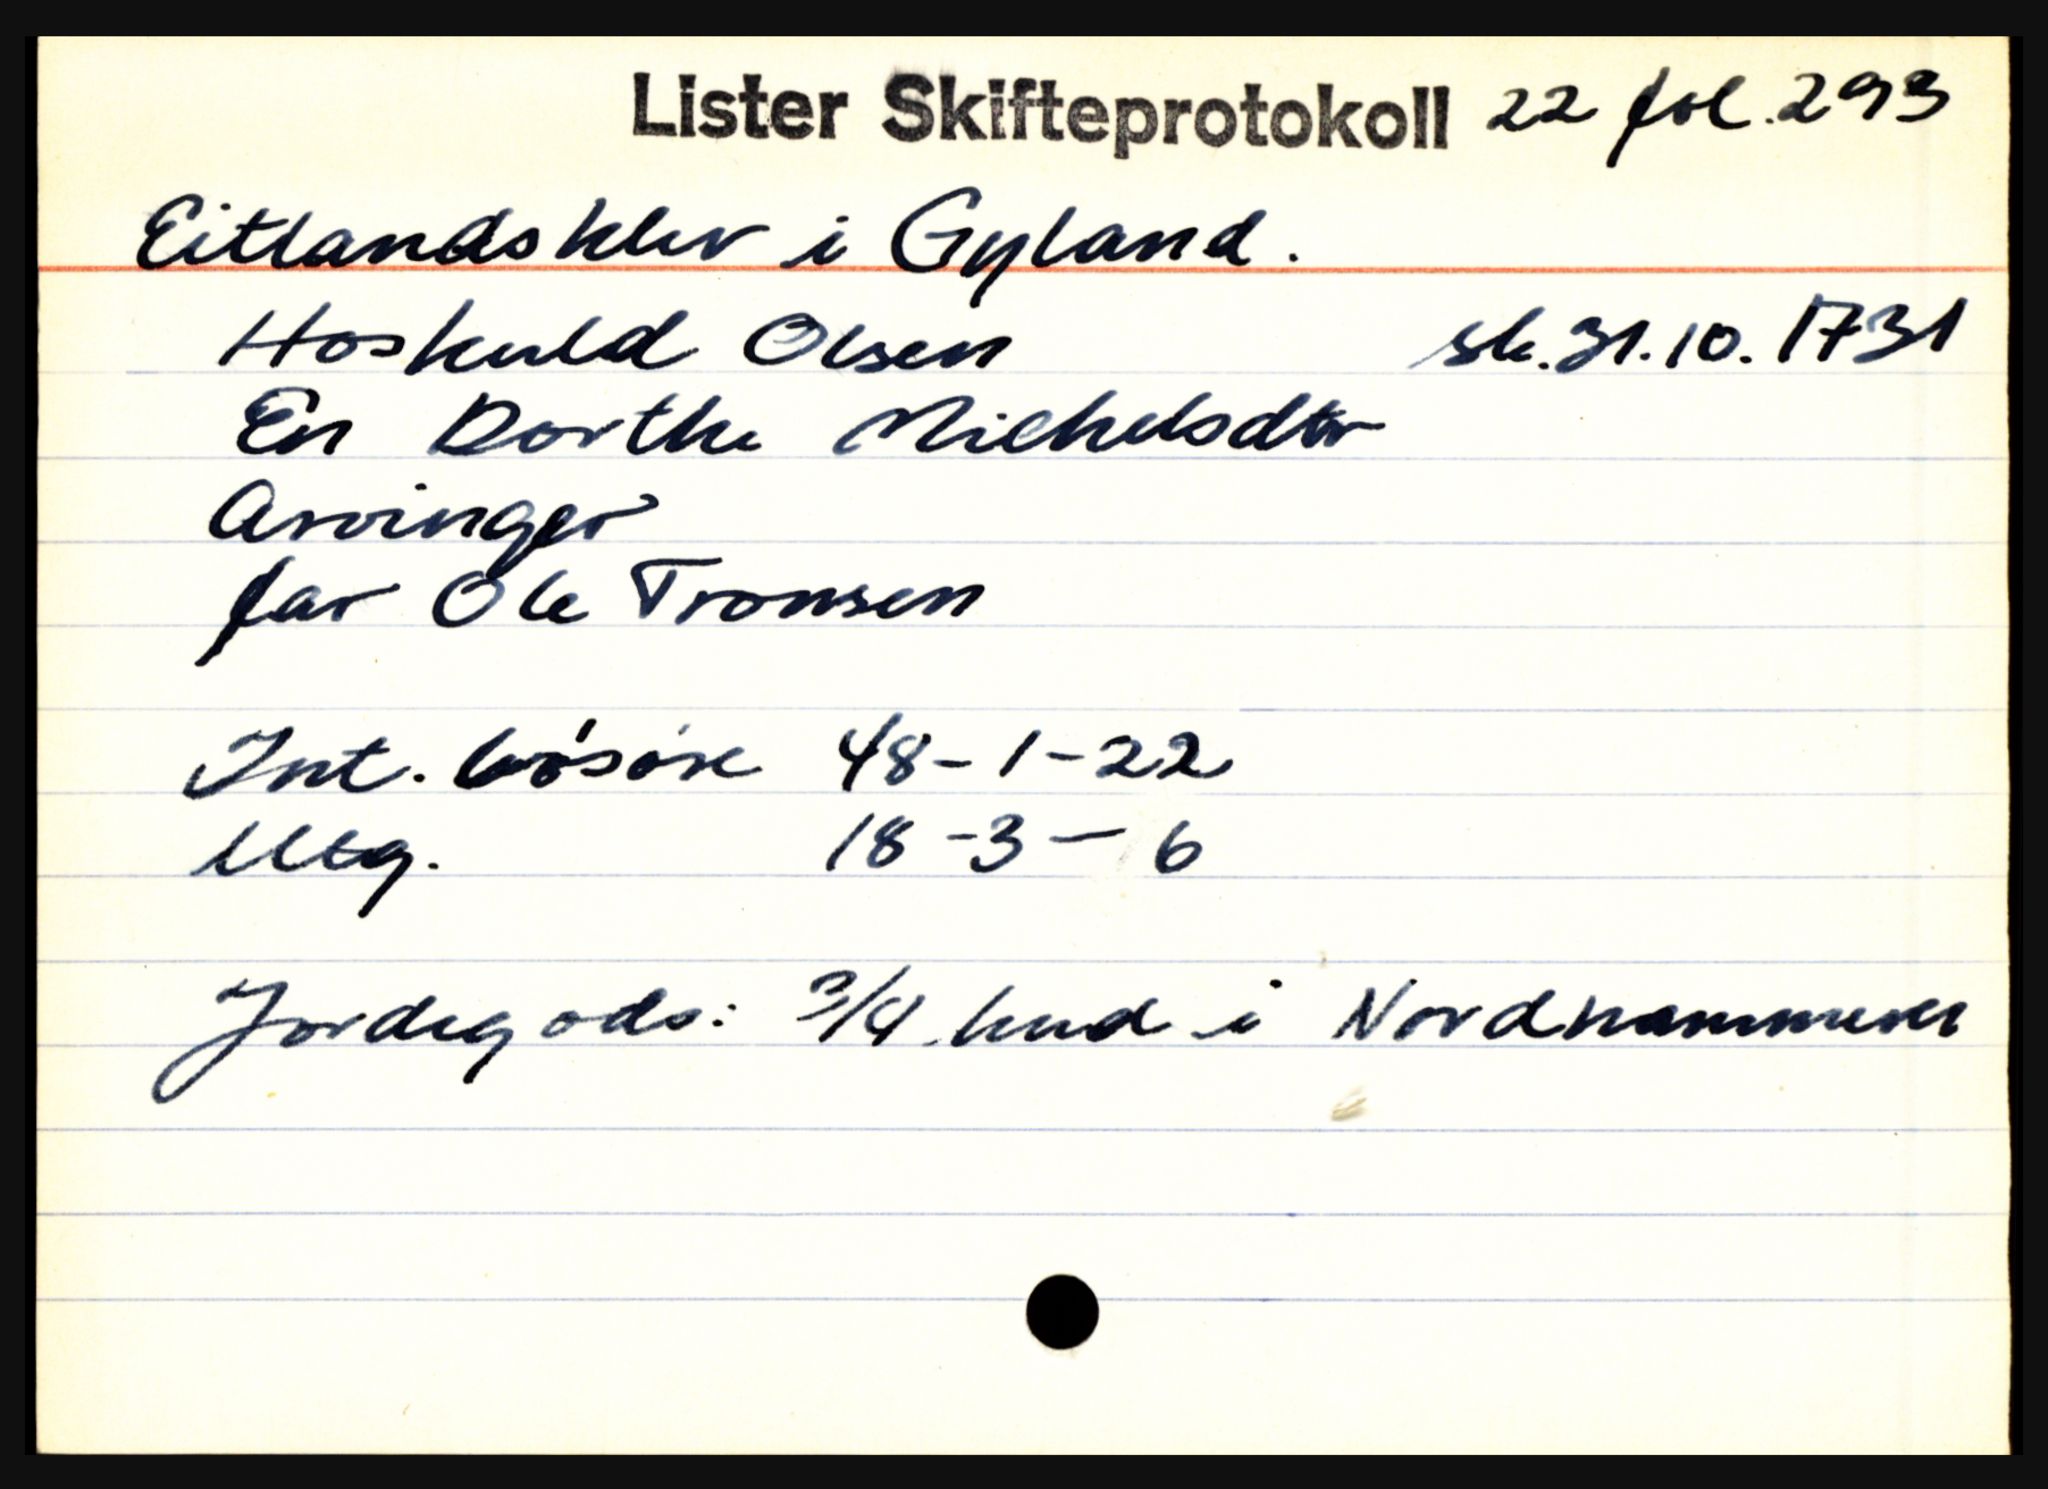 Lister Skifteprotokoll 22 fol. 293
Eitlandsklev i Gyland.
Hoskuld Olsen sk. 31.10.1731
En Dorthe Michelsdtr
Arvinger
far Ole Tronsen
Int. løsøre 48-1-22
Utg. 18-3-6
Jordegods: 3/4 hud i Nordhammeren